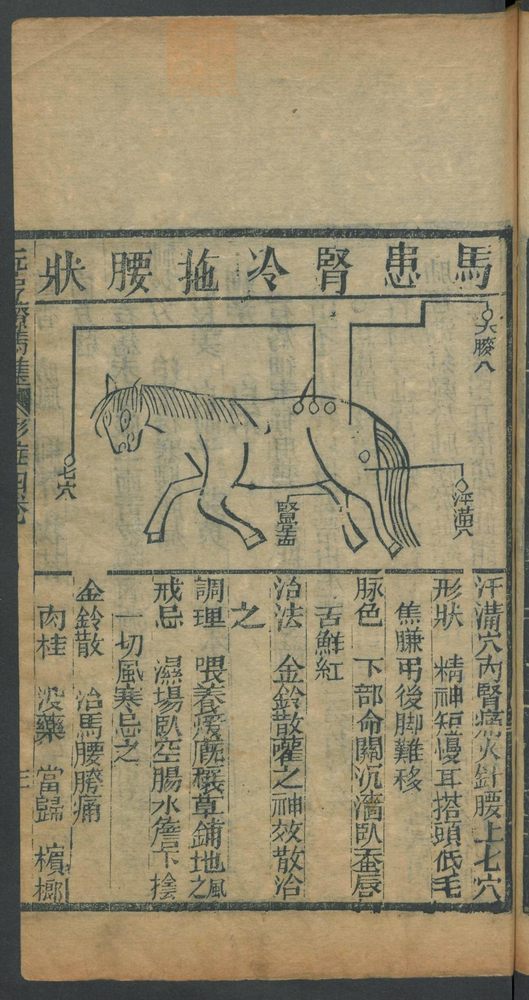 馬患腎冷拖腰狀
大胯八
七穴
腎堂穴
汗溝穴
汗溝穴內腎痛火針腰上七穴
形狀 精神短慢耳搭頭低毛
焦賺弔後脚難移
脉色 下部命關沉濇臥蚕唇
舌鮮紅
治法 金鈴散灌之神效散治
之
調理 喂養煖廐穰草鋪地之風
戒忌 濕塲臥空腸水簷下拴
一切風寒忌之
金鈴散 治馬腰胯痛
肉桂 没藥 當歸 檳榔
元亨療馬集
四卷
三